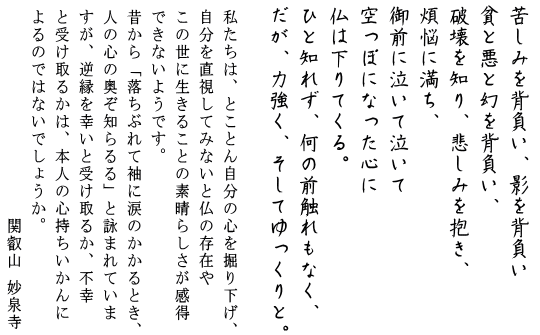 苦しみを背負い、影を背負い
貪と悪と幻を背負い、
破壊を知り、悲しみを抱き、
煩悩に満ち、
御前に泣いて泣いて
空っぽになった心に
仏は下りてくる。
ひと知れず、何の前触れもなく、
だが、力強く、そしてゆっくりと。
私たちは、とことん自分の心を掘り下げ、
自分を直視してみないと仏の存在や
この世に生きることの素晴らしさが感得
できないようです。
昔から「落ちぶれて袖に涙のかかるとき、
人の心の奥ぞ知らるる」と詠まれていま
すが、逆縁を幸いと受け取るか、不幸
と受け取るかは、本人の心持ちいかんに
よるのではないでしょうか。
関叡山 妙泉寺